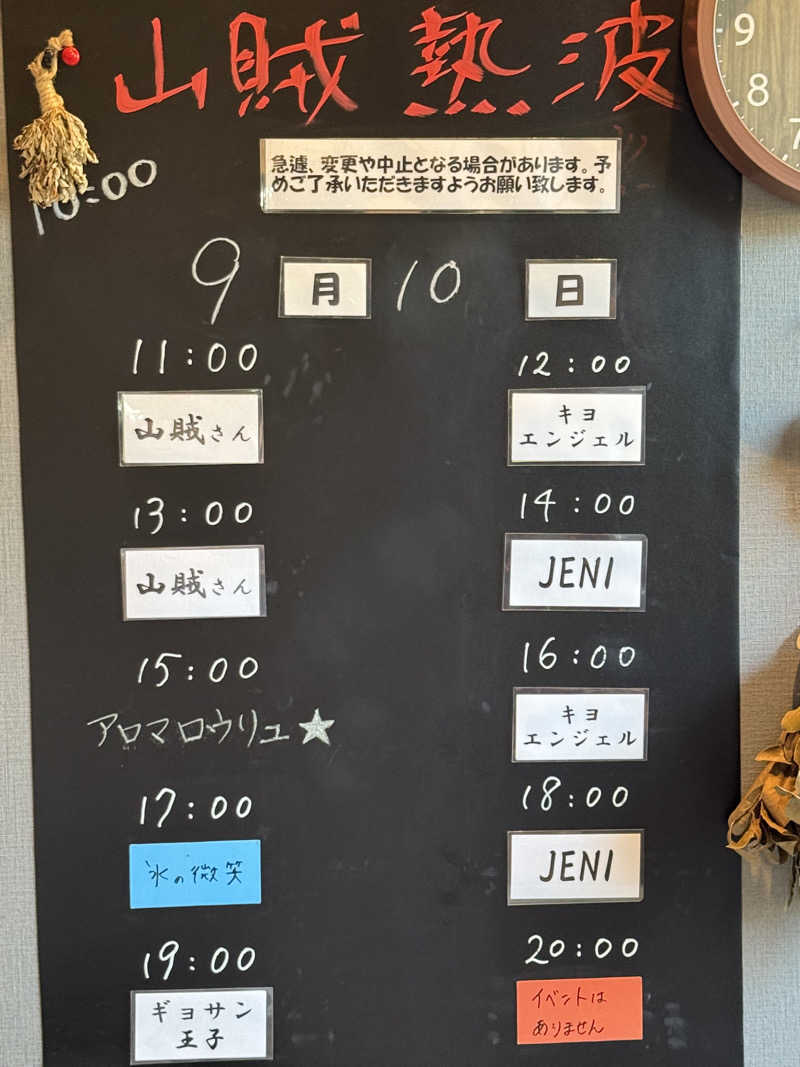 山賊熱波
急遽、変更や中止となる場合があります。予
めご了承いただきますようお願い致します。
10:00
9月10日
11:00
山賊さん
12:00
キヨ
エンジェル
13:00
山賊さん
14:00
JENI
15:00
アロマロウリュ★
16:00
キヨ
エンジェル
17:00
氷の微笑
18:00
JENI
19:00
ギョサン
王子
20:00
イベントは
ありません
9
8
7